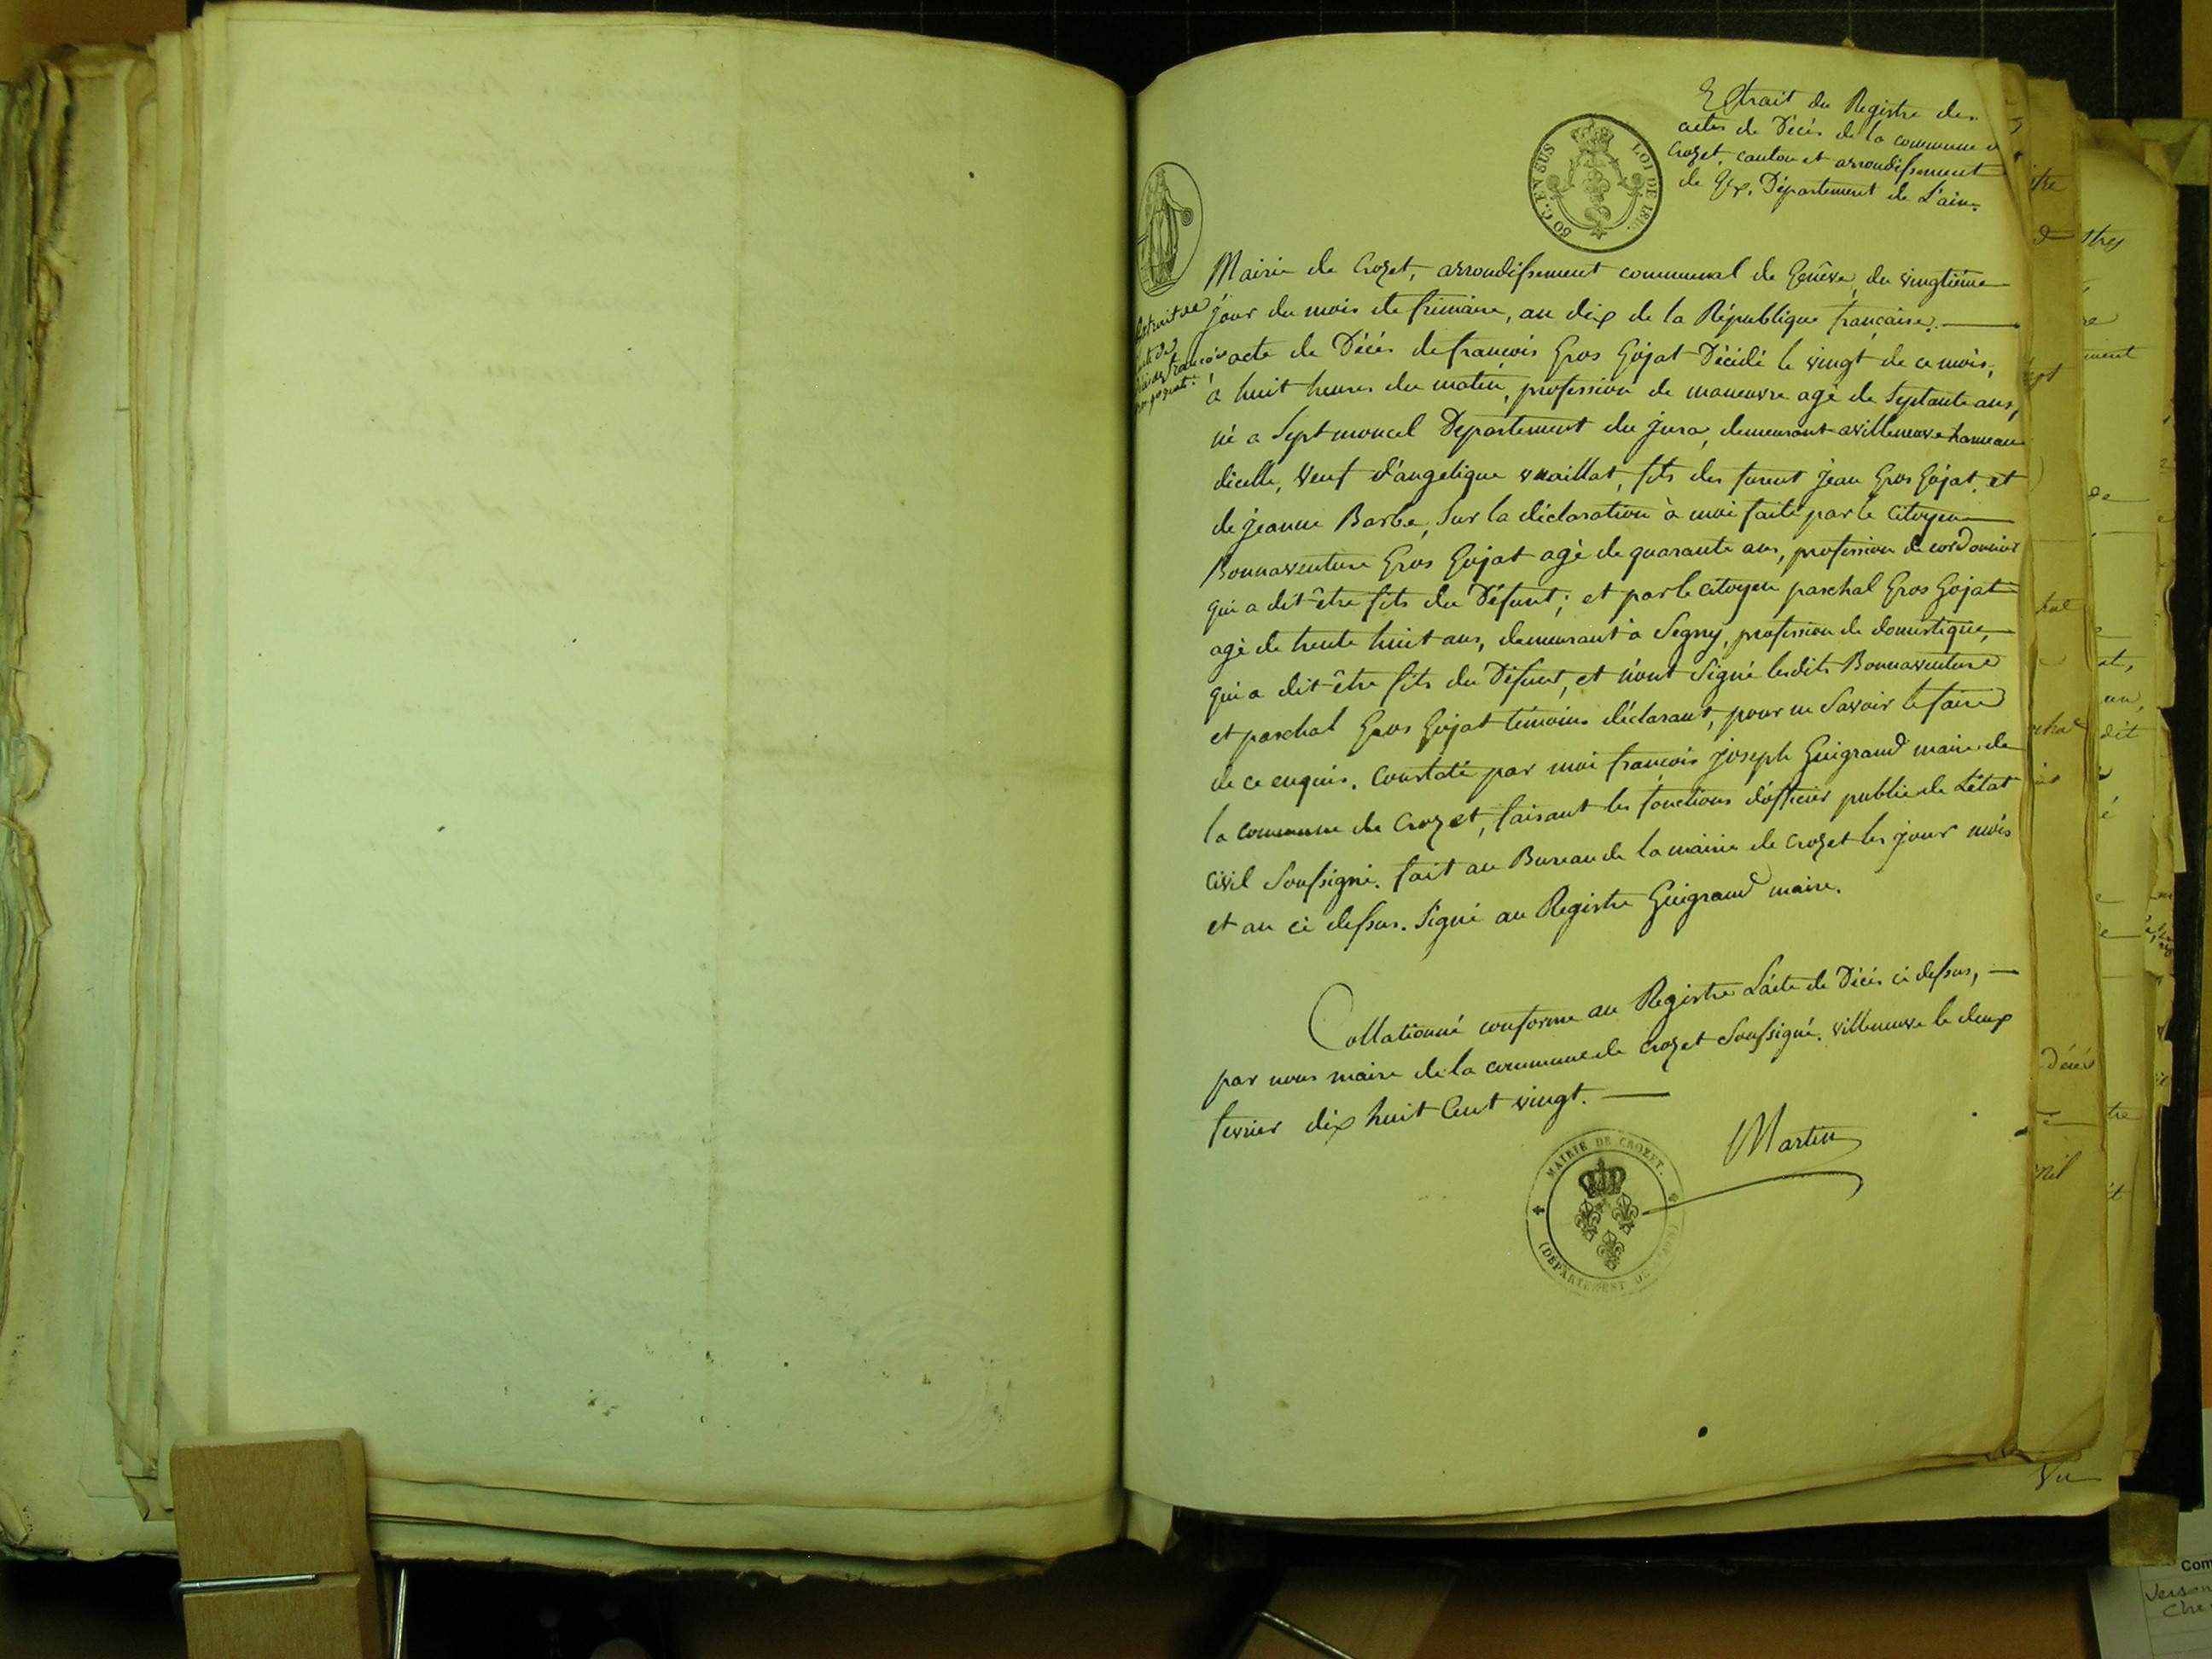 Extrait du Registre des
actes de Décés de la commune d
Crozet, canton et arrondissement
de Gex, Département de L'ain.
50 C. EN SUS LOI DE 1816.
Mairie de Crozet, arrondissement communal de Genêve, du vingtiéme
jour du mois de frimaire, an dix de la République francaise.
acte de Décés de francois Gros Gojat Décédé le vingt de ce mois,
à huit heures du matin, profession de maneuvre agé de Septante ans,
né a Septmoncel Departement du jura, demeurant a villeneuve hameau
dicelle, Veuf d'angelique vuaillat, fils des furent Jean Gros Gojat, et
de jeanne Barbe, Sur la déclaration à moi faite par le Citoyen
Bonnaventure Gros Gojat agé de quarante ans, profession de cordonnier
qui a dit être fils du Défunt; et par le citoyen paschal Gros Gojat
agé de trente huit ans, demeurant à Segny, profession de domestique,
qui a dit être fils du Défunt, et n'ont Signé lesdits Bonnaventure
et paschal Gros Gojat témoins déclarant, pour ne Savoir le faire
de ce enquis. Constaté par moi francois joseph Guigrand maire de
la commune de Crozet, faisant les fonctions d'officier public de L'état
civil Soussigné. fait au Bureau de la mairie de Crozet les jour mois
et an ci dessus. Signé au Registre Guigrand maire.
Collationné conforme au Registre L'acte de Décés ci dessus,
par nous maire de la commune de Crozet Soussigné. villeneuve le deux
fevrier dix huit Cent vingt.
Martin
MAIRIE DE CROZET.
(DÉPARTEMENT DE L'AIN)